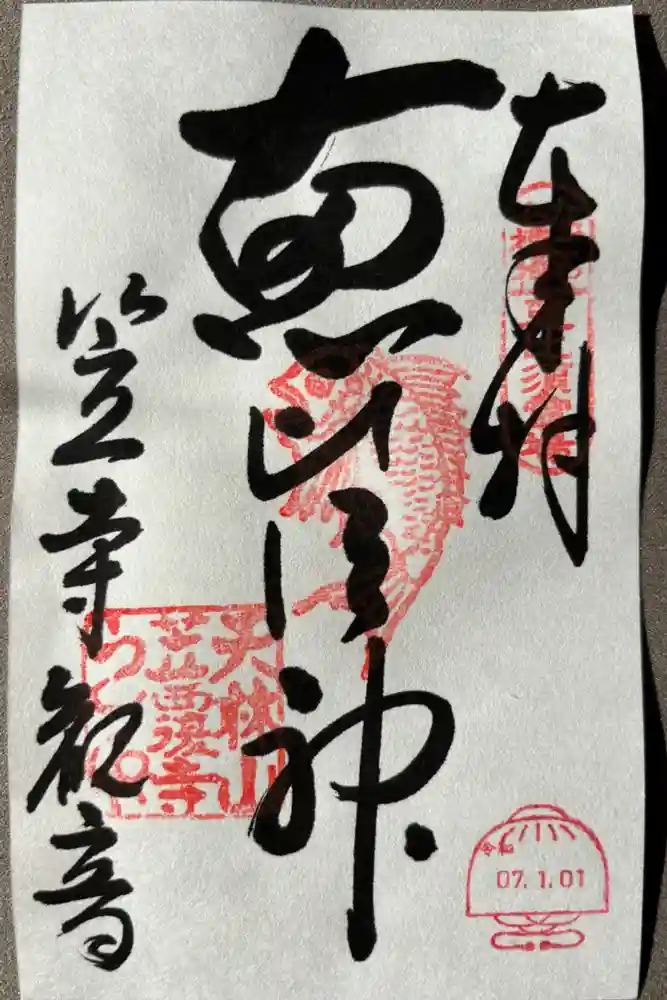 奉拝
恵比須神
笠寺観音
天林山
令和
07.1.01